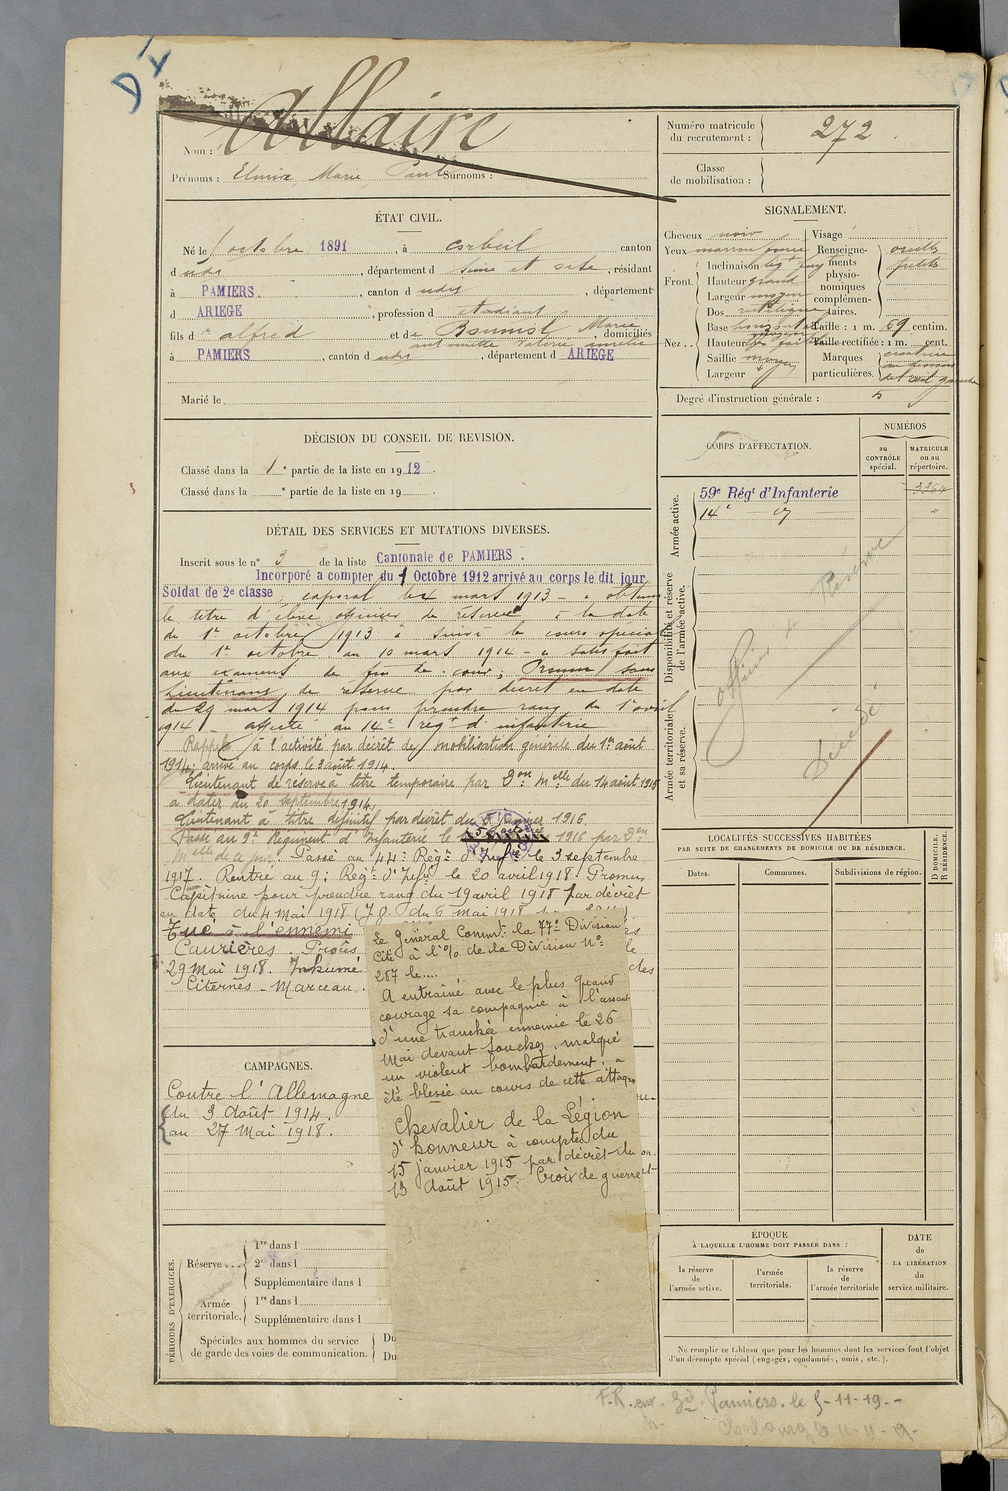 Allaire
Nom :
Prénoms : Marie Paul Surnoms :
Numéro matricule du recrutement : 272
Classe de mobilisation :
ÉTAT CIVIL.
Né le octobre 1891, à Corbeil canton
d udit, département d Seine et Oise, résidant
à PAMIERS, canton d udit, département
d ARIEGE, profession d étudiant
fils d' alfred et de Marie
antoinette Valérie amélie domiciliés
à PAMIERS, canton d udit, département d ARIEGE
Marié le
SIGNALEMENT.
Cheveux noir Visage
Yeux marron foncé Renseigne-
ments
physio-
nomiques
complémen-
taires. oreilles
petites
Front. Inclinaison
Hauteur grand
Largeur moyen
Nez .. Dos rectiligne
Base horizontale
Hauteur
Saillie moyen
Largeur
Taille : 1 m. 69 centim.
Taille rectifiée : 1 m. cent.
Marques particulières. cicatrice
au dessous
de l'œil gauche
Degré d'instruction générale : 5
DÉCISION DU CONSEIL DE REVISION.
Classé dans la 1e partie de la liste en 1912.
Classé dans la e partie de la liste en 19
DÉTAIL DES SERVICES ET MUTATIONS DIVERSES.
Inscrit sous le n° 3 de la liste Cantonale de PAMIERS.
Incorporé a compter du 1 Octobre 1912 arrivé au corps le dit jour
Soldat de 2e classe, caporal mars 1913 - a obtenu
le titre d'élève officier de réserve à la date
du 1er octobre 1913 a suivi le cours spécial
du 1er octobre au 10 mars 1914 - a satisfait
aux examens de fin de cour, Promu sous
Lieutenant de réserve par décret en date
du 29 mars 1914 pour prendre rang du 1er avril
1914 - affecté au 14e régt d'infanterie
Rappelé à l'activité par décret de mobilisation générale du 1er août
1914; arrivé au corps le 3 août 1914.
Lieutenant de réserve à titre temporaire par Don Melle du 14 août 1915
à dater du 20 septembre 1914.
Lieutenant à titre définitif par décret du janvier 1916.
Passé au 9e Régiment d'Infanterie le 1916 par Don
Melle de ce jour. Passé au 44e Régt d'Infie le 3 septembre
1917. Rentré au 9e Régt d'Infie le 20 avril 1918 Promu
Capitaine pour prendre rang du 19 avril 1918 par décret
en date du 4 Mai 1918 (J.O. du 6 mai 1918
Tué à l'ennemi
Caurières. Procès
29 Mai 1918. Inhumé
Citernes-Marceau.
Le Général Commt la 77e Division
Cité à l'% de la Division N°
287 le....
A entraîné avec le plus grand
courage sa compagnie à l'assaut
d'une tranchée ennemie le 26
Mai devant Souchez, malgré
un violent bombardement. a
été blessé au cours de cette attaque
Chevalier de la Légion
d'honneur à compter du
15 janvier 1915 par décret du
13 août 1915. Croix de guerre
CAMPAGNES.
Contre l'Allemagne
du 3 Août 1914.
au 27 Mai 1918.
PÉRIODES D'EXERCICES.
Réserve ... 1re dans l
2e dans l
Supplémentaire dans l
Armée territoriale. 1re dans l
Supplémentaire dans l
Spéciales aux hommes du service
de garde des voies de communication. Du
Du
CORPS D'AFFECTATION.
NUMÉROS
au CONTRÔLE spécial.
MATRICULE ou au répertoire.
Armée active.
59e Régt d'Infanterie
14e
Disponibilité et réserve de l'armée active.
Officier de Réserve
Armée territoriale et sa réserve.
Décédé
LOCALITÉS SUCCESSIVES HABITÉES
PAR SUITE DE CHANGEMENTS DE DOMICILE OU DE RÉSIDENCE.
Dates. Communes. Subdivisions de région. D DOMICILE. R RÉSIDENCE.
ÉPOQUE
À LAQUELLE L'HOMME DOIT PASSER DANS :
la réserve de l'armée active.
l'armée territoriale.
la réserve de l'armée territoriale
DATE de LA LIBÉRATION du service militaire.
Ne remplir ce tableau que pour les hommes dont les services font l'objet
d'un décompte spécial (engagés, condamnés, omis, etc.).
Pamiers. le 5-11-19.